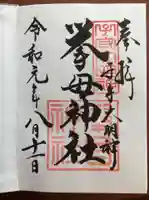 奉拝
子守大明神
挙母神社
令和元年八月十一日